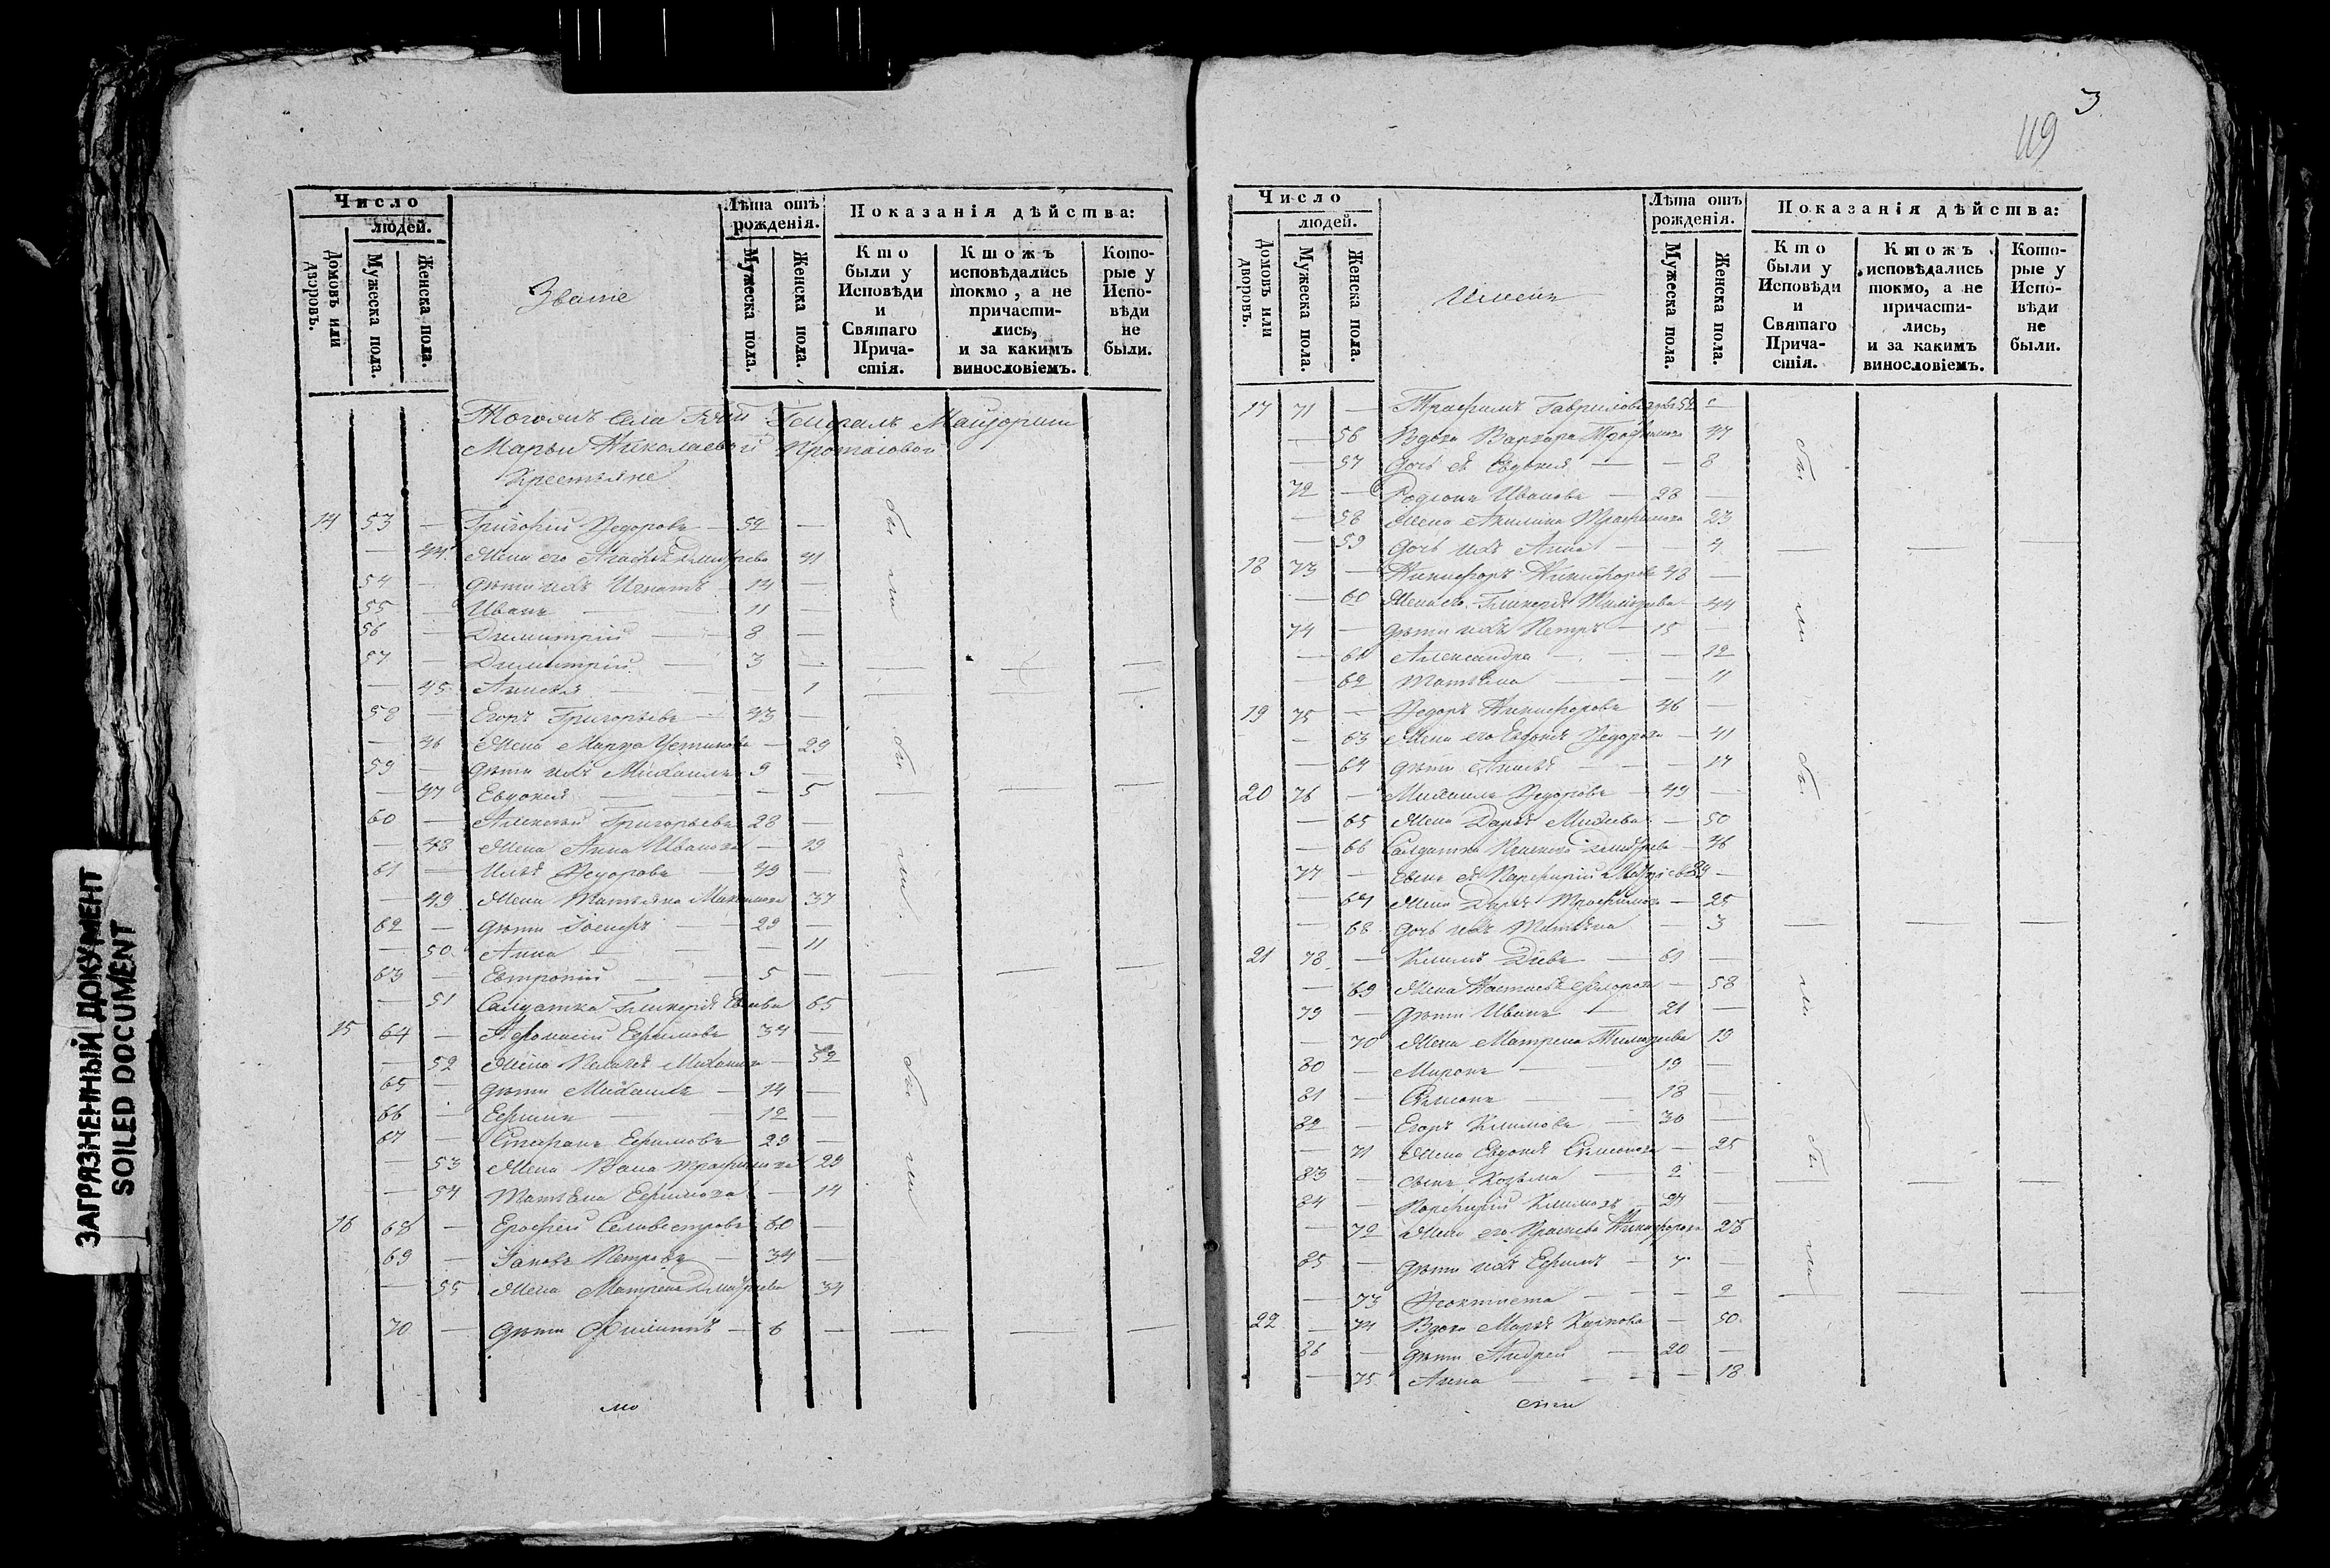 ЗАГРЯЗНЕННЫЙ ДОКУМЕНТ
SOILED DOCUMENT
Число
людей.
Домовъ или дворовъ.
Мужеска пола.
Женска пола.
Званіе
Лѣта отъ рожденія.
Мужеска пола.
Женска пола.
Показанія дѣйства:
Кто были у Исповѣди и Святаго Прича-стія.
Ктожъ исповѣдались токмо, а не причасти-лись, и за какимъ винословіемъ.
Кото-рые у Испо-вѣди не были.
Тогожъ села Генералъ Маіорши
Марьи Николаевой Протасовой
Крестьяне
14 53 — Григорій Ѳедоровъ — 52 —
— 44 Жена его Агафья Дмитріева 41
54 — дѣти ихъ Игнатъ 14 —
55 — Иванъ — 11 —
56 — Димитрій — 8 —
57 — Димитрій — 3 —
— 45 — 1
58 — Егоръ Григорьевъ — 43 —
— 46 Жена Марѳа Устинова — 29
59 — дѣти ихъ Михаилъ 9 —
— 47 Евдокія — 5
60 — Алексѣй Григорьевъ 28 —
— 48 Жена Анна Иванова — 29
61 — Илья Ѳедоровъ — 49 —
— 49 Жена Татьяна 37
62 — дѣти Іосифъ — 23 —
— 50 Анна — 11
63 — Евтропій — 5 —
— 51 Салдатка Гликерія 65
15 64 — Афанасій Ефимовъ 34 —
— 52 Жена Пелагея — 32
65 — дѣти Михаилъ — 14 —
66 — Ефимъ — 12 —
67 — Стефанъ Ефимовъ 29 —
— 53 Жена Трофимова 23
— 54 Татьяна Ефимова — 14
16 68 — Ерофей Селивестровъ 60 —
69 — Іаковъ Петровъ — 34 —
— 55 Жена Матрена Дмитріева 34
70 — дѣти Филиппъ — 6 —
были
были
были
мо
3
119
Число
людей.
Домовъ или дворовъ.
Мужеска пола.
Женска пола.
Имена
Лѣта отъ рожденія.
Мужеска пола.
Женска пола.
Показанія дѣйства:
Кто были у Исповѣди и Святаго Прича-стія.
Ктожъ исповѣдались токмо, а не причасти-лись, и за какимъ винословіемъ.
Кото-рые у Испо-вѣди не были.
17 71 — Трофимъ Гавриловъ 52
— 56 Вдова Варвара Трофимова 47
— 57 Дочь ея Евдокія — 8
72 — Родіонъ Ивановъ — 28 —
— 58 Жена Акилина Трофимова 23
— 59 дочь ихъ Анна — 4
18 73 — Никифоръ Никифоровъ 48 —
— 60 Жена его Гликерія 44
74 — дѣти ихъ Петръ — 15 —
— 61 Александра — 12
— 62 Татьяна — 11
19 75 — Ѳедоръ Никифоровъ 46 —
— 63 Жена его Евдокія Ѳедорова — 41
— 64 дѣти — 17
20 76 — Михаилъ Ѳедоровъ — 49 —
— 65 Жена Дарья Михеева — 50
— 66 Салдатка Дмитріева — 46
77 — Сынъ ея Парфирій 29 —
— 67 Жена Дарья Трофимова — 25
— 68 Дочь ихъ Татьяна — 3
21 78 — Климъ — 61 —
— 69 Жена Настасья — 58
79 — Дѣти Иванъ — 21 —
— 70 Жена Матрена 19
80 — Миронъ — 19 —
81 — Симеонъ — 18 —
82 — Егоръ Климовъ — 30 —
— 71 Жена Евдокія Симеонова — 25
83 — сынъ Козьма — 2 —
84 — Порфирій Климовъ — 27 —
— 72 Жена его Никифорова 28
85 — дѣти ихъ Ефимъ — —
— 73 Ѳеоктиста — 2
22 — 74 Вдова Марья — 50
86 — дѣти Андрей — 20 —
— 75 Анна — 18
были
были
были
сти